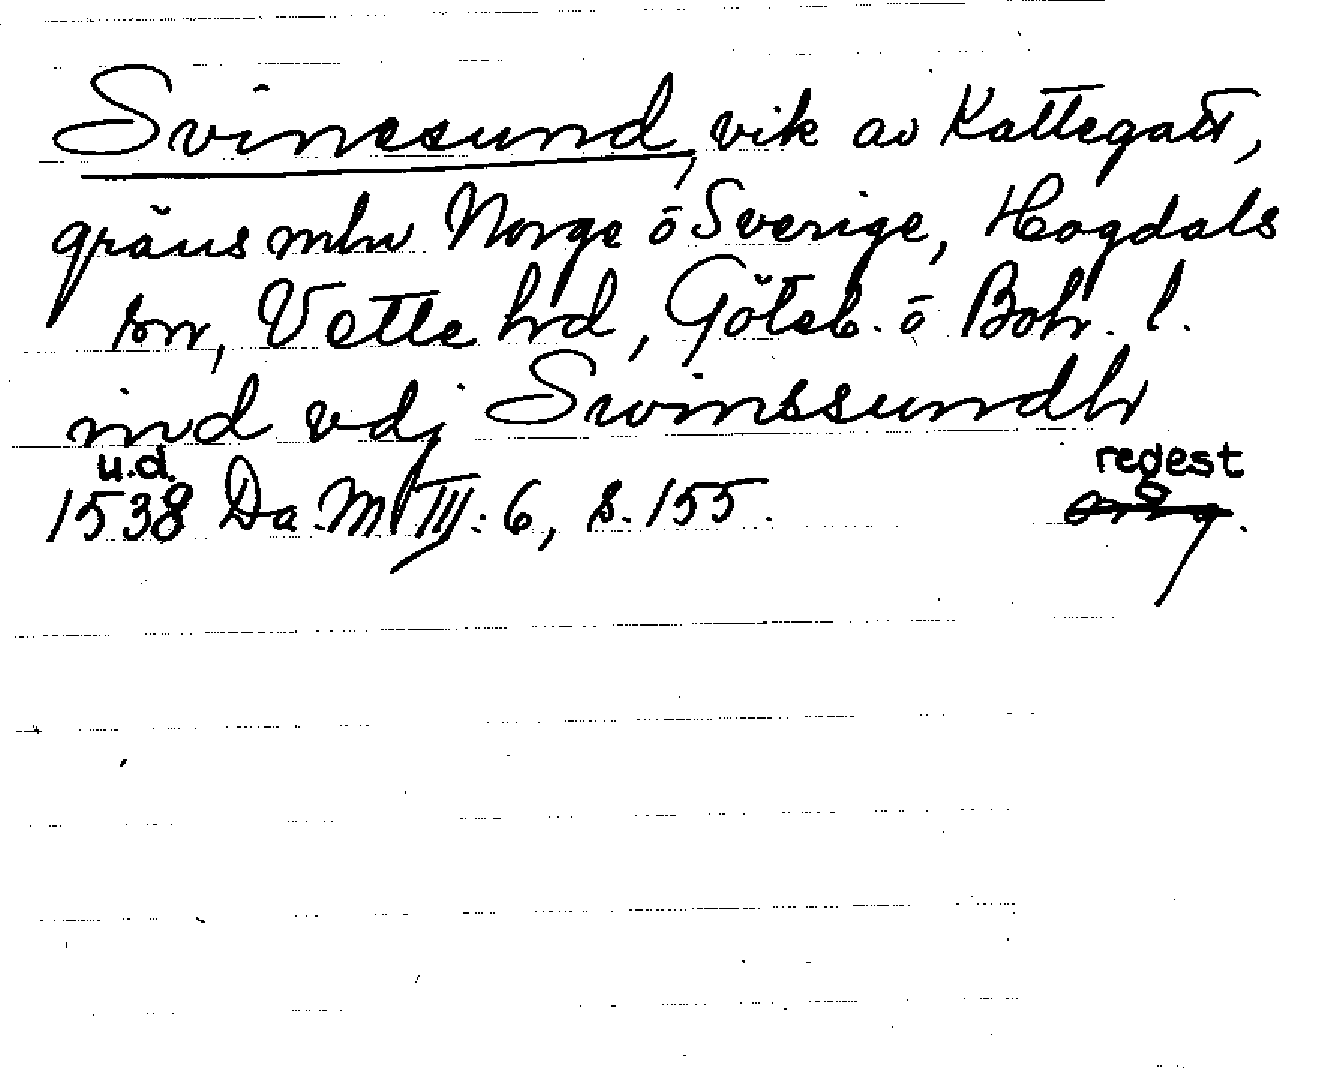 Svinesund, vik av Kattegatt,
gräns mln Norge ö Sverige, Hogdals
sn, Vette hd, Göteb. ö Boh. l.
ind vdj Swinssundh
u.d. regest
1538 Da. M III: 6, s. 155. orig.